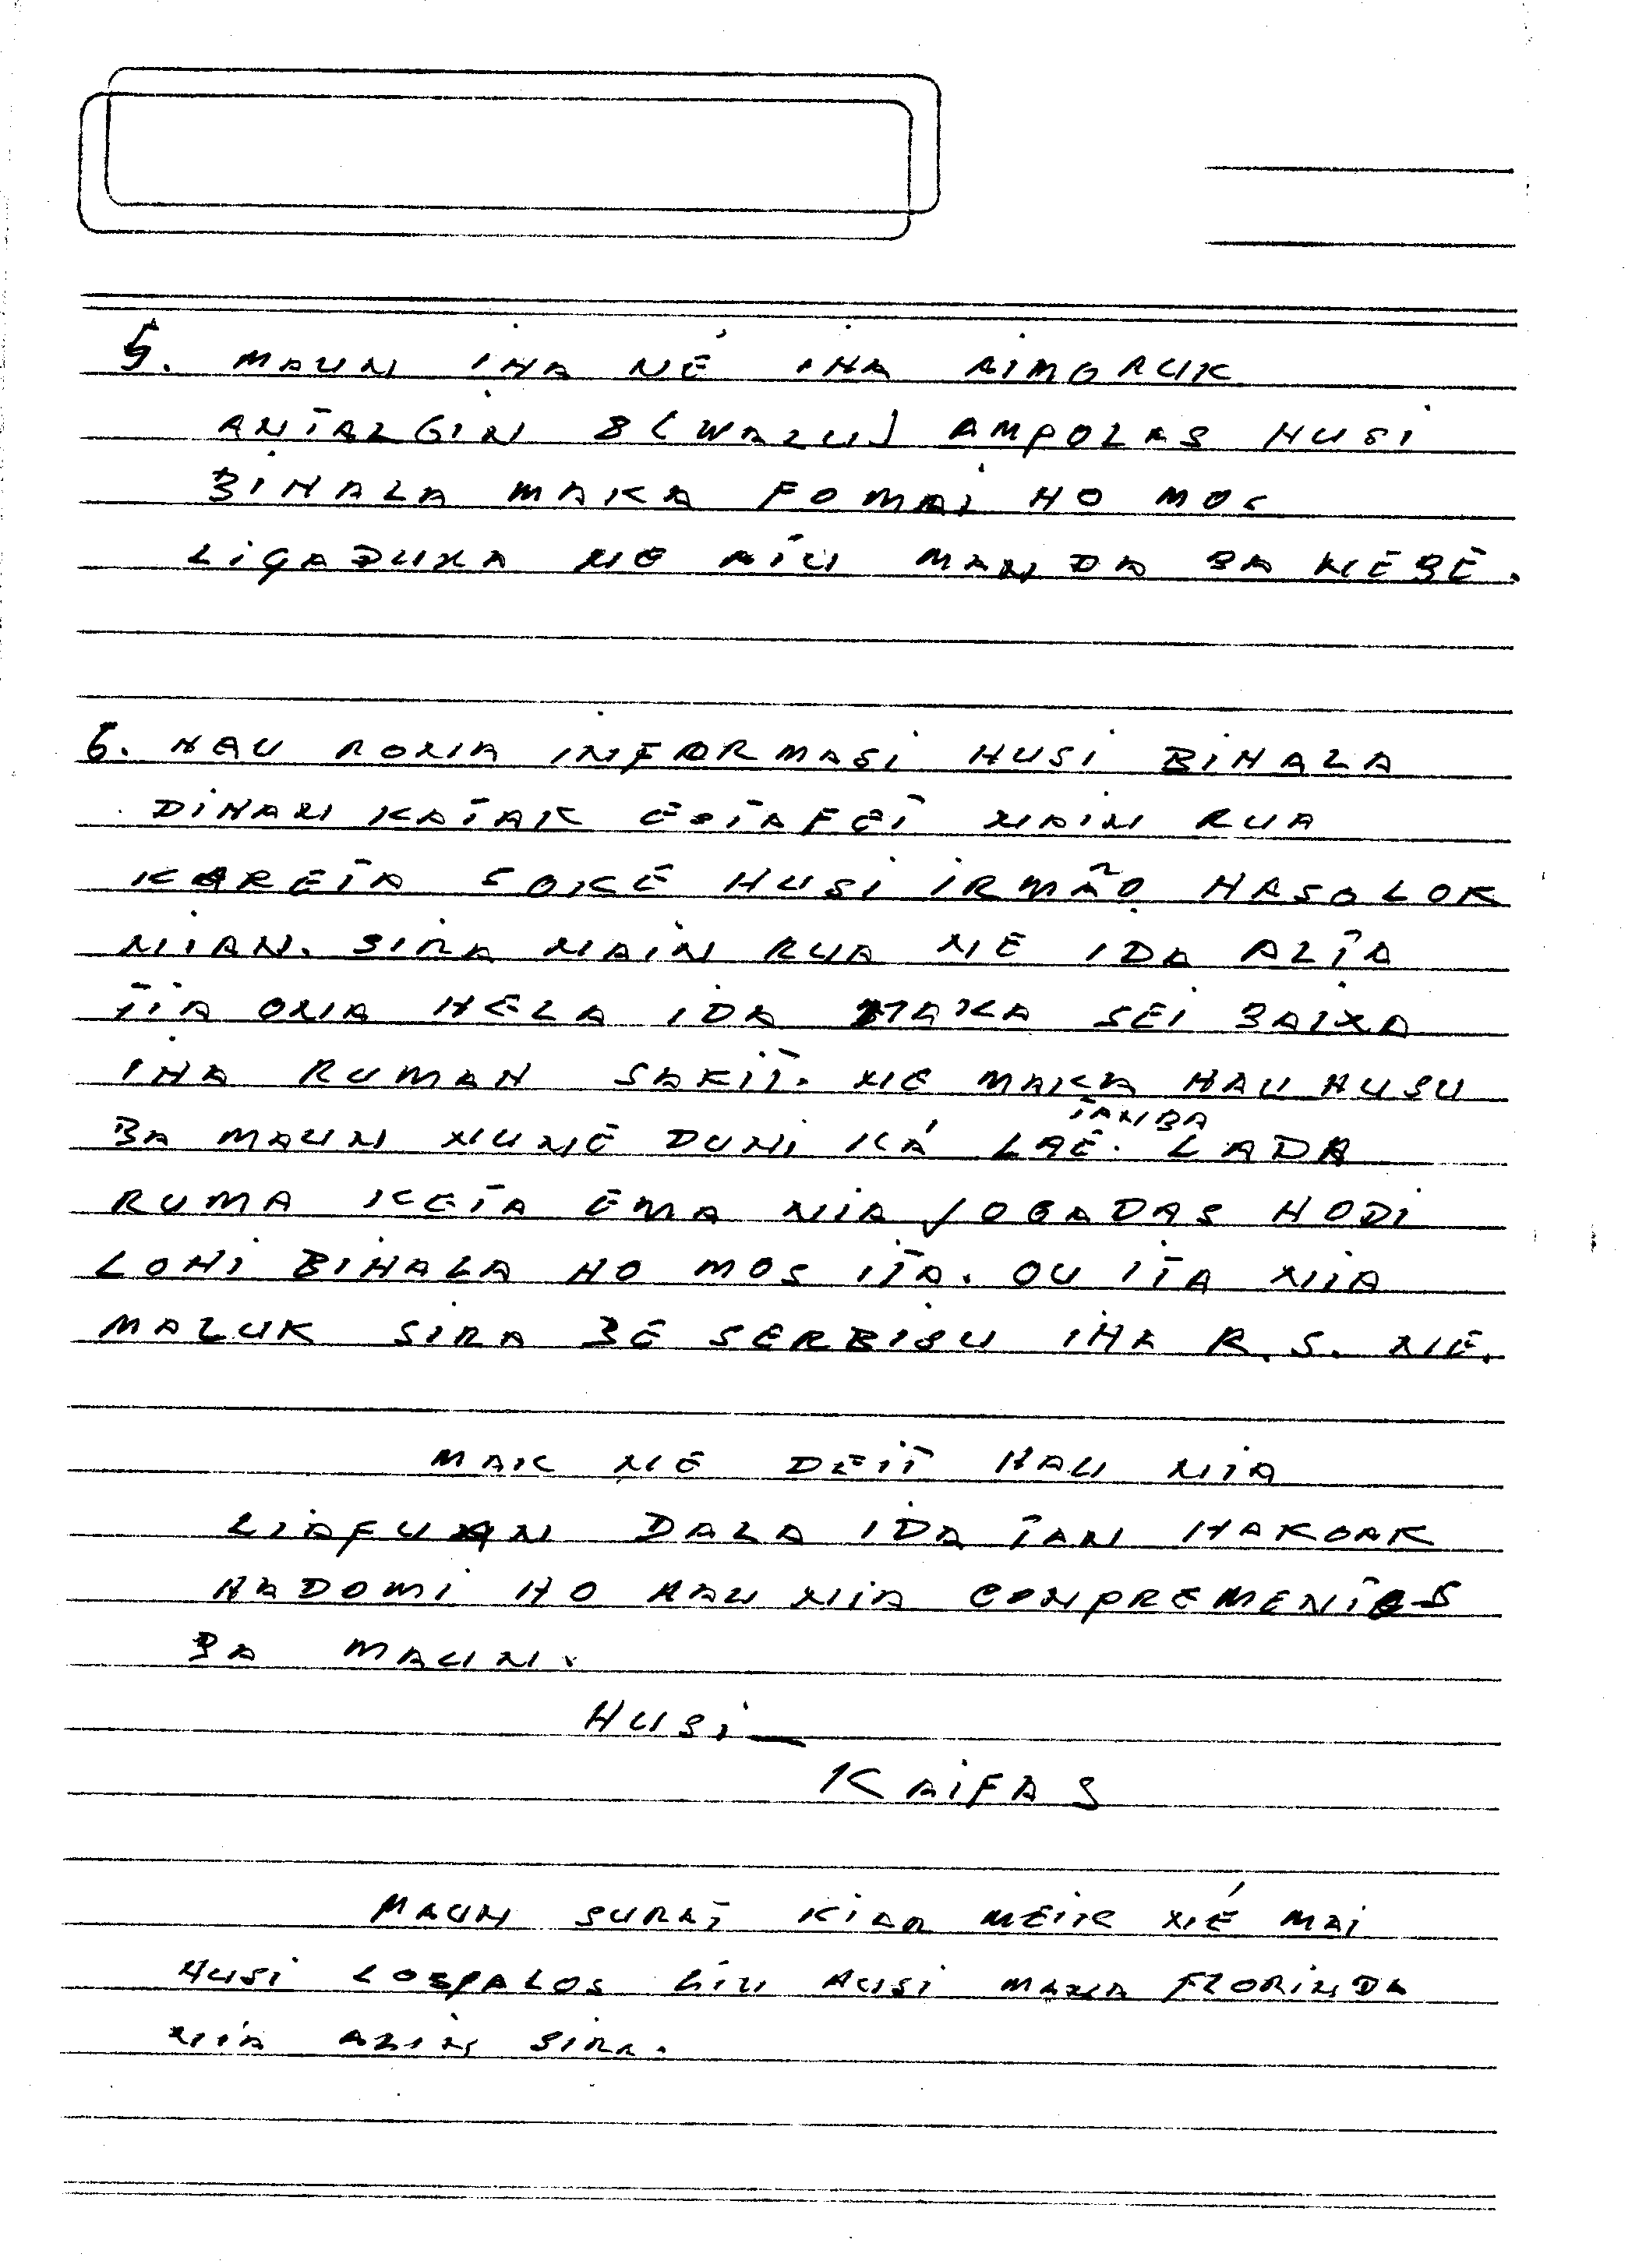 5. MAUN IHA NÉ IHA AIMORUK
ANTALGIN 8 (WALU) AMPOLAS HUSI
BIHALA MAKA FO MAI HO MOS
LIGADURA NE ATU MANDA BA NEBÉ.
6. HAU RONA INFORMASI HUSI BIHALA
DIHAN KATAK ESTAFET NAIN RUA
KARETA SOKE HUSI IRMÃO HASOLOK
NIAN. SIRA NAIN RUA NE IDA ALTA
TIA ONA HELA IDA MAKA SEI BAIXA
IHA RUMAH SAKIT. NE MAKA HAU HUSU
BA MAUN NUNÉ DUNI KÁ LAÉ. TANBA LADA
RUMA KETA EMA NIA JOGADAS HODI
LOHI BIHALA HO MOS ITA. OU ITA NIA
MALUK SIRA BÉ SERBISU IHA R.S. NE.
MAK NE DEIT HAU NIA
LIAFUAN DALA IDA TAN HAKOAK
HADOMI HO HAU NIA CONPREMENTOS
BA MAUN.
HUSI
KAIFAS
MAUN SURAT KIAR MEIK NÉ MAI
HUSI LOSPALOS LIU HUSI MANA FLORINDA
NIA ALIN SIRA.